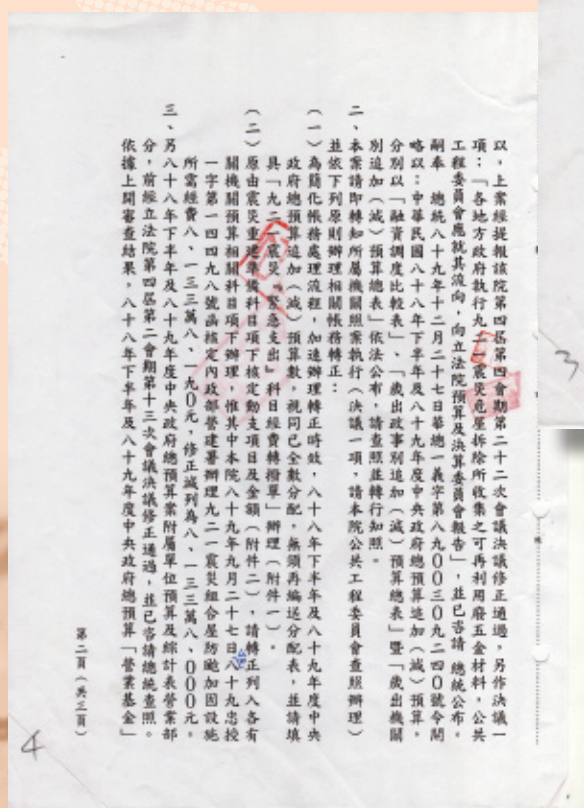 以，上案經提報該院第四屆第四會期第二十二次會議決議修正通過，另作決議一
項：「各地方政府執行九二一震災危屋拆除所收集之可再利用廢五金材料，公共
工程委員會應就其流向，向立法院預算及決算委員會報告」，並已咨請 總統公布。
嗣奉 總統八十九年十二月二十七日華總一義字第八九００三０九二四０號令開
略以：中華民國八十八年下半年及八十九年度中央政府總預算追加（減）預算，
分別以「融資調度比較表」、「歲出政事別追加（減）預算總表」暨「歲出機關
別追加（減）預算總表」依法公布，請查照並轉行知照。
二、本案請即轉知所屬機關照案執行（決議一項，請本院公共工程委員會查照辦理）
並依下列原則辦理相關帳務轉正：
（一）為簡化帳務處理流程，加速辦理轉正時效，八十八年下半年及八十九年度中央
政府總預算追加（減）預算數，視同已全數分配，無須再編送分配表，並請填
具「九二一震災、緊急支出」科目經費轉撥單」辦理（附件一）。
（二）原由震災重建準備科目項下核定動支項目及金額（附件二），請轉正列入各有
關機關預算相關科目項下辦理，惟其中本院八十九年九月二十七日八十九忠授
一字第一四四九八號函核定內政部營建署辦理九二一震災組合屋防颱加固設施
所需經費八、一三三萬八、一九０元，修正減列為八、一三三萬八、０００元。
三、另八十八年下半年及八十九年度中央政府總預算案附屬單位預算及綜計表營業部
分，前經立法院第四屆第二會期第十三次會議決議修正通過，並已咨請總統查照。
依據上開審查結果，八十八年下半年及八十九年度中央政府總預算「營業基金」
第二頁（共三頁）
4
3